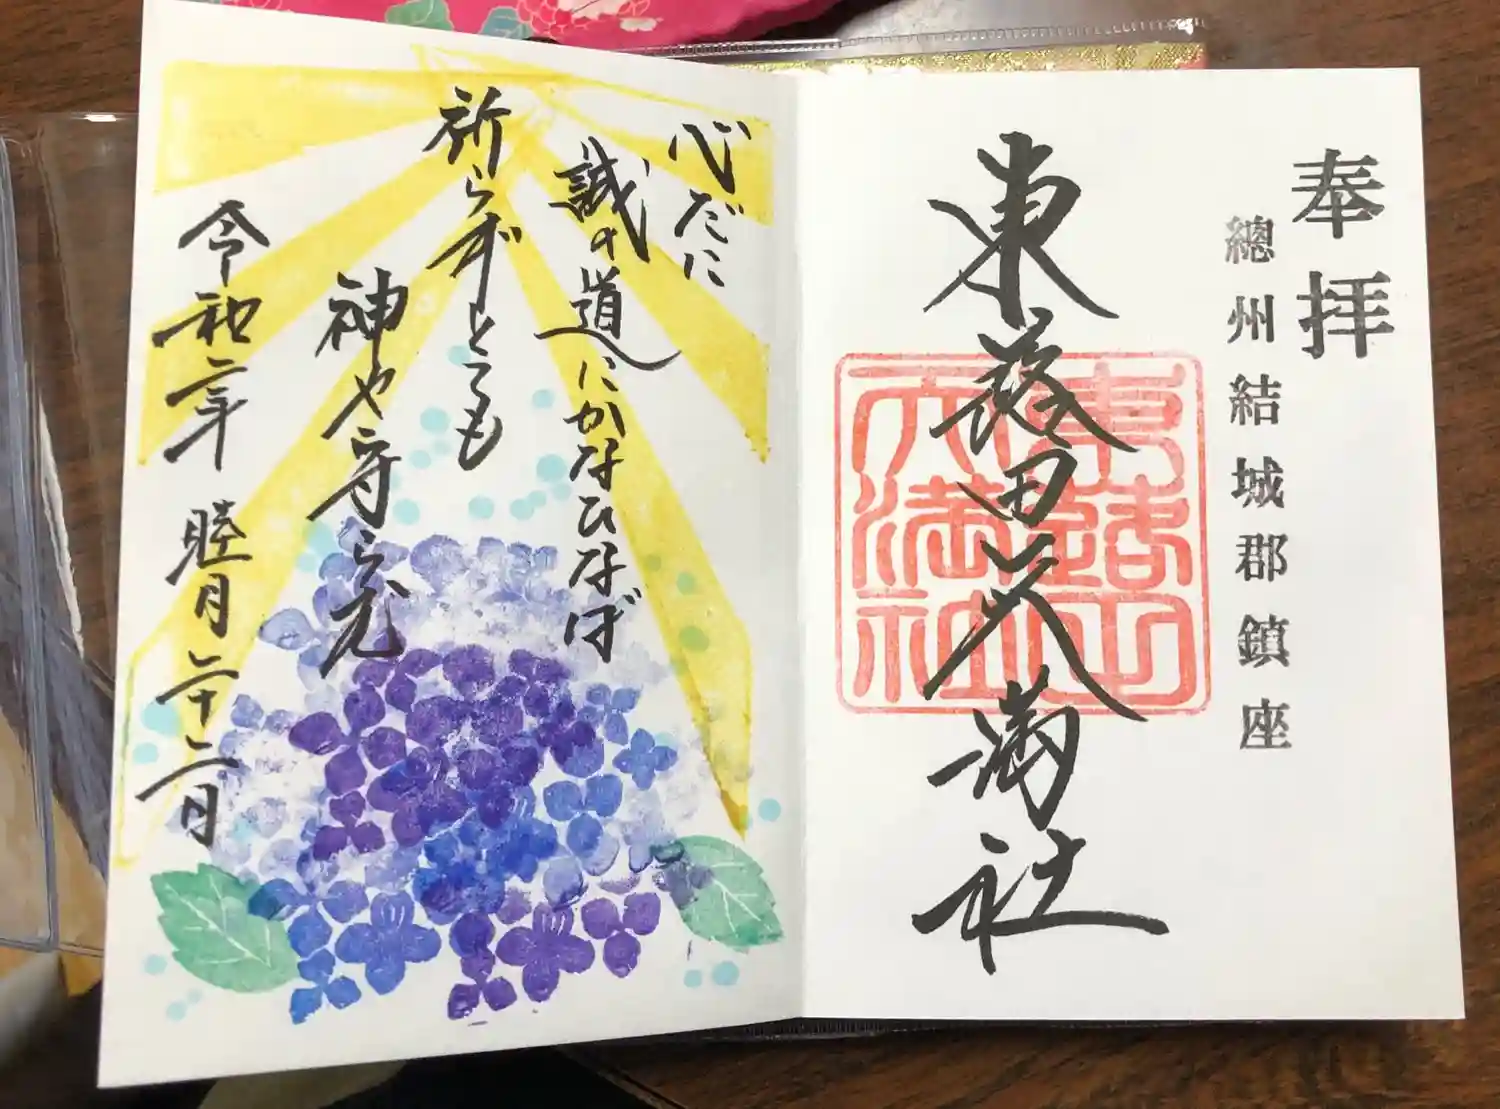 奉拝
總州結城郡鎮座
東蕗田天満社
東蕗田
天満社
心だに
誠の道にかなひなば
祈らずとても
神や守らむ
令和二年 睦月 二十二日